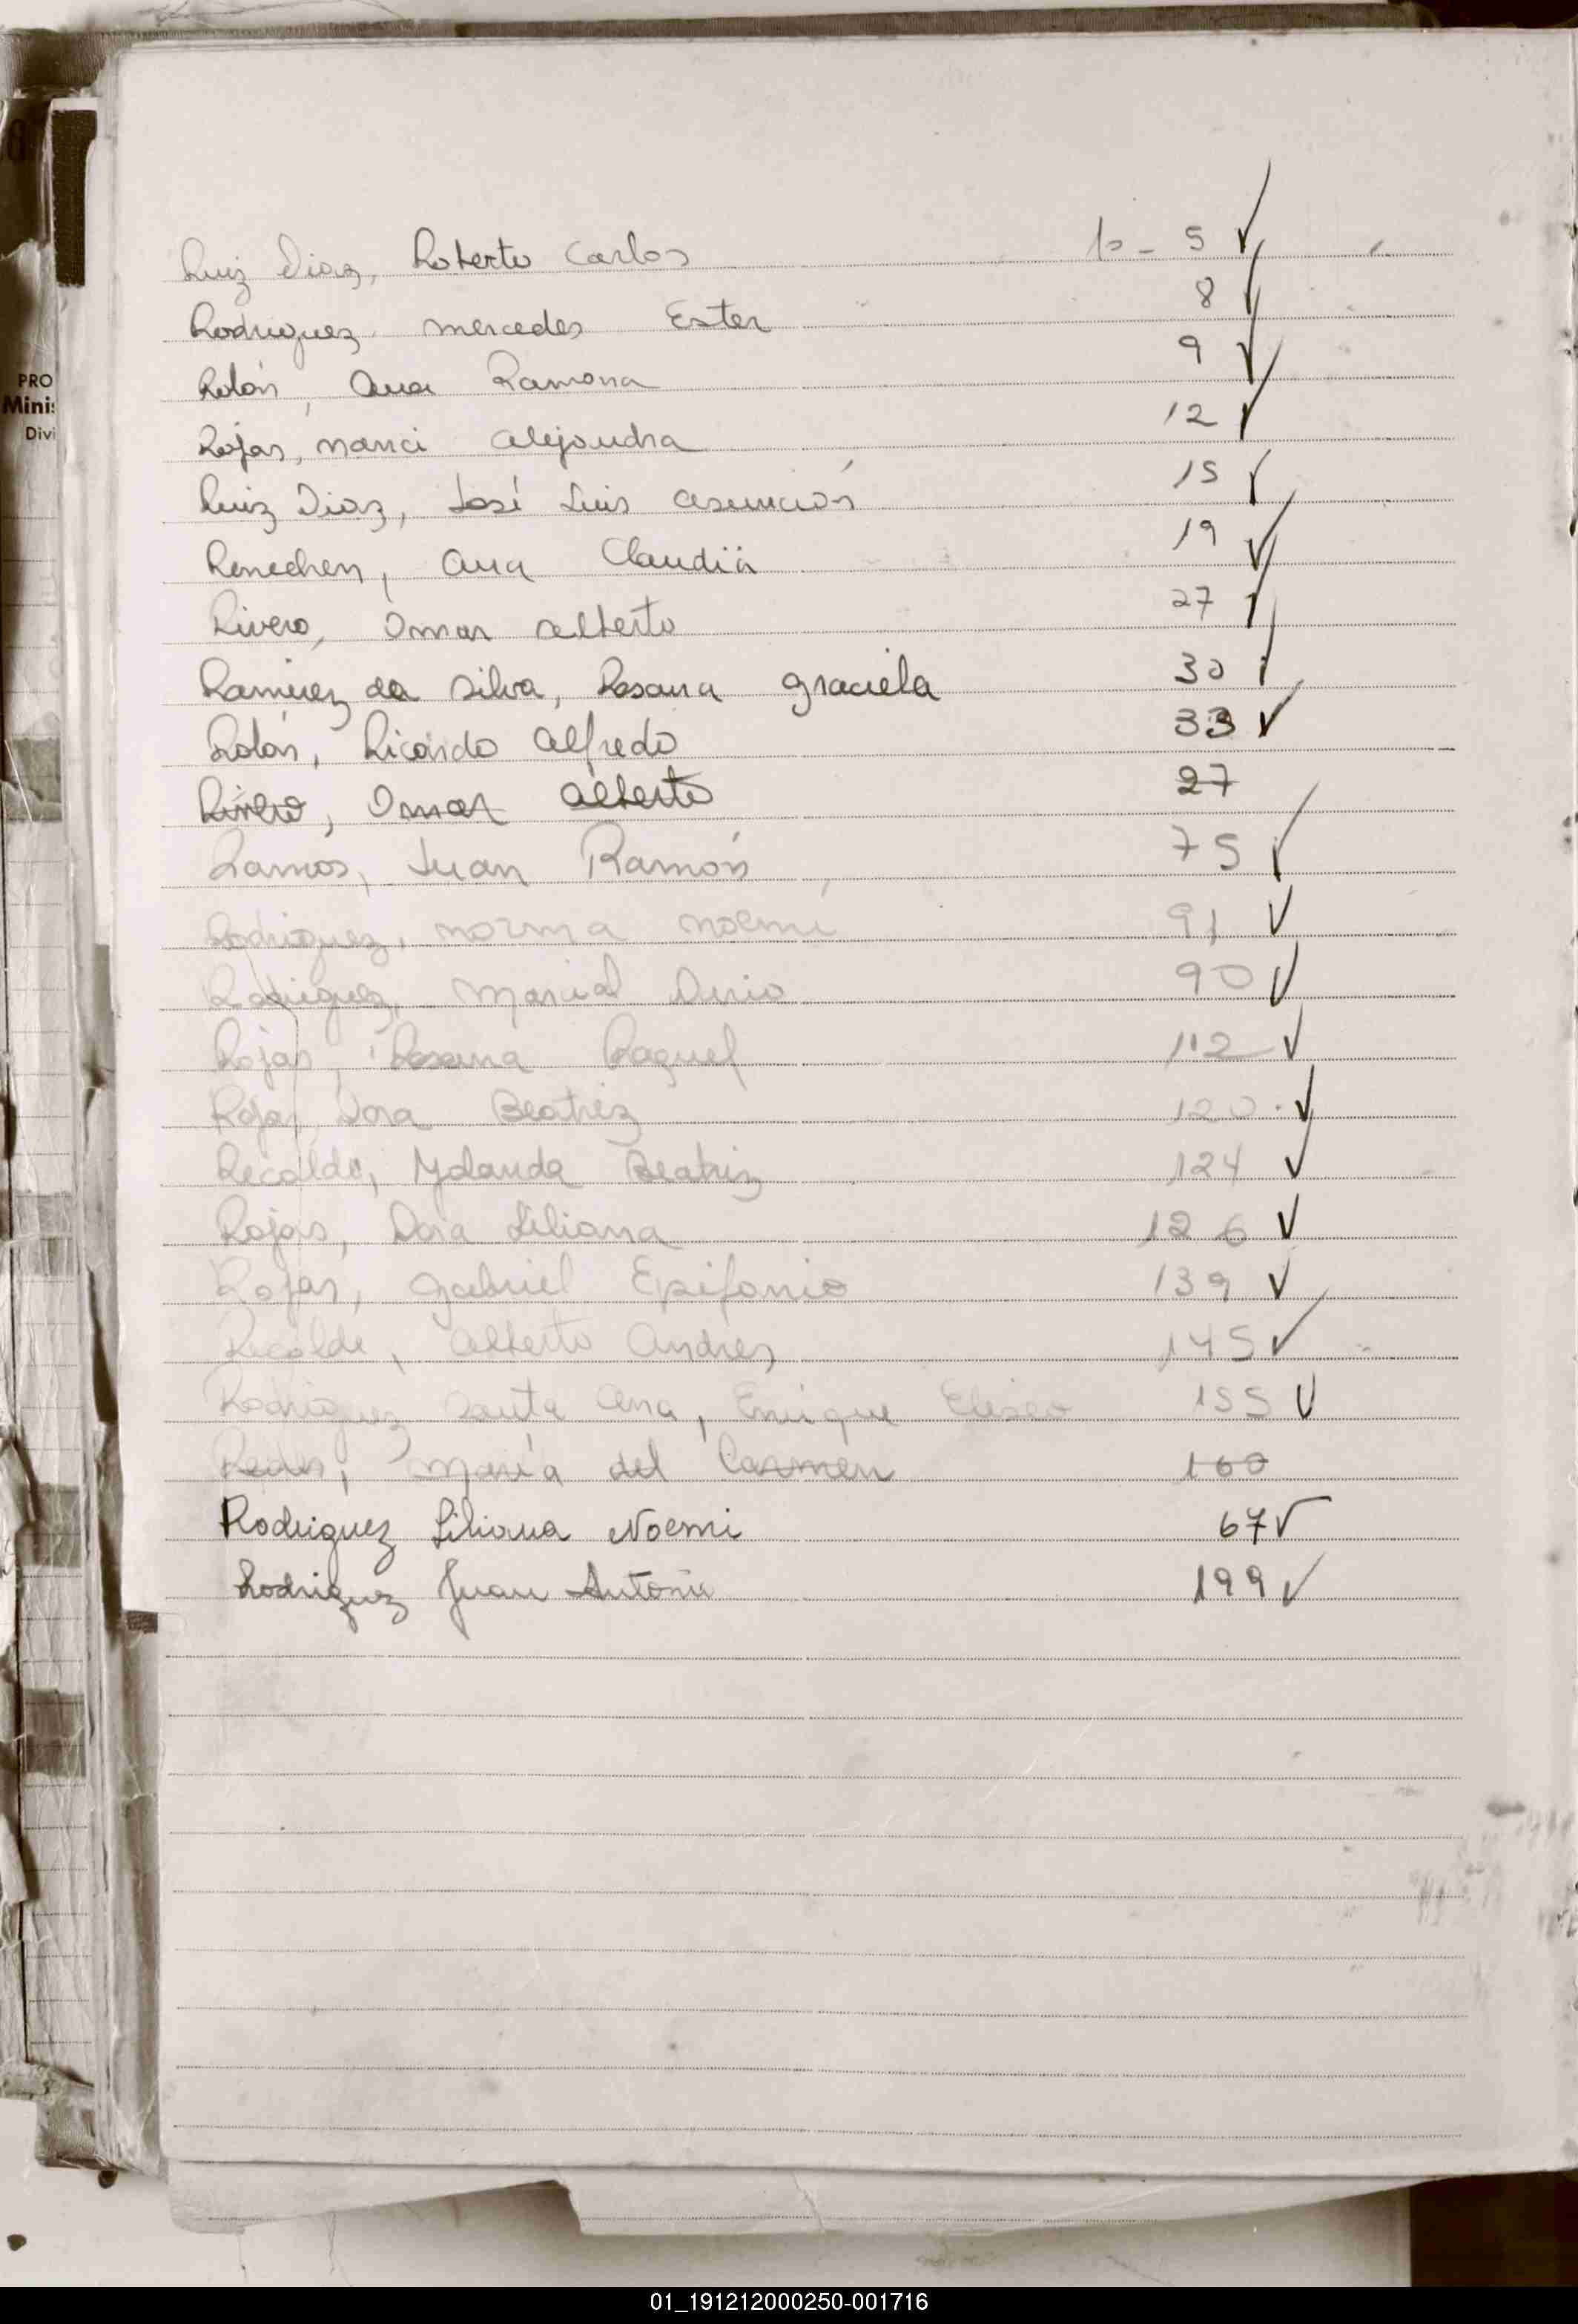 Ruiz Diaz, Roberto Carlos 5 ✓
Rodriguez mercedes Ester 8 ✓
Rolón, Ana Ramona 9 ✓
Rojas, nanci alejandra 12 ✓
Ruiz Diaz, José Luis asunción 15 ✓
Renechen, Ana Claudia 19 ✓
Rivero, Omar alberto 27 ✓
Ramirez da silva, Rosana graciela 30 ✓
Rolón, Ricardo alfredo 33 ✓
Rivero, Omar alberto 27
Ramos, Juan Ramón 75 ✓
Rodriguez, norma noemi 91 ✓
Rodriguez, Marcial 90 ✓
Rojas, Rosana Raquel 112 ✓
Rojas, Dora Beatriz 120 ✓
Recalde, Yolanda Beatriz 124 ✓
Rojas, Dora Liliana 126 ✓
Rojas, gabriel Epifanio 139 ✓
Recalde, alberto Andres 145 ✓
Rodriguez Santa Ana, Enrique Eliseo 155 ✓
María del Carmen 160
Rodriguez Liliana Noemi 67 ✓
Rodriguez Juan Antonio 199 ✓
PRO
Minis
Divi
01_191212000250-001716